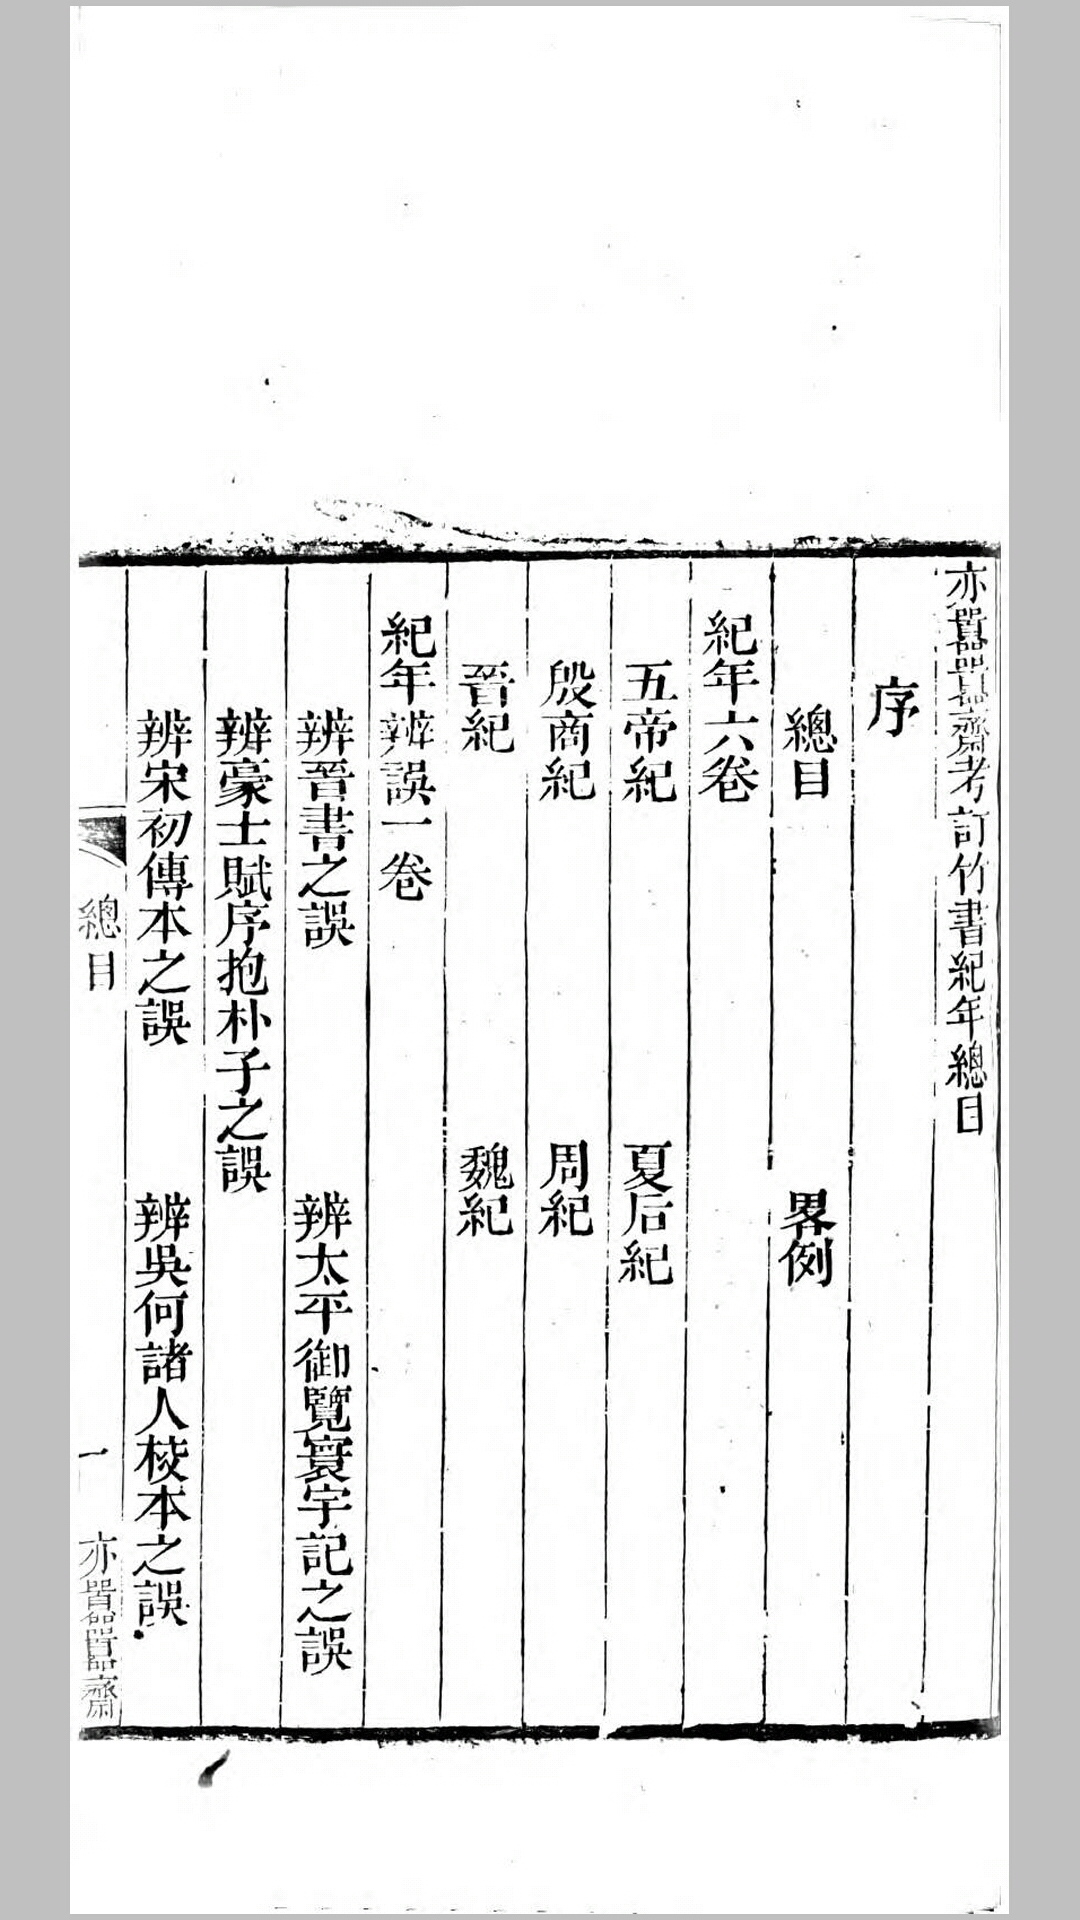 亦囂囂齋考訂竹書紀年總目
序
總目　畧例
紀年六卷
五帝紀　夏后紀
殷商紀　周紀
晉紀　魏紀
紀年辨誤一卷
辨晉書之誤　辨太平御覽寰宇記之誤
辨豪士賦序抱朴子之誤
辨宋初傳本之誤　辨吳何諸人校本之誤
總目　一　亦囂囂齋